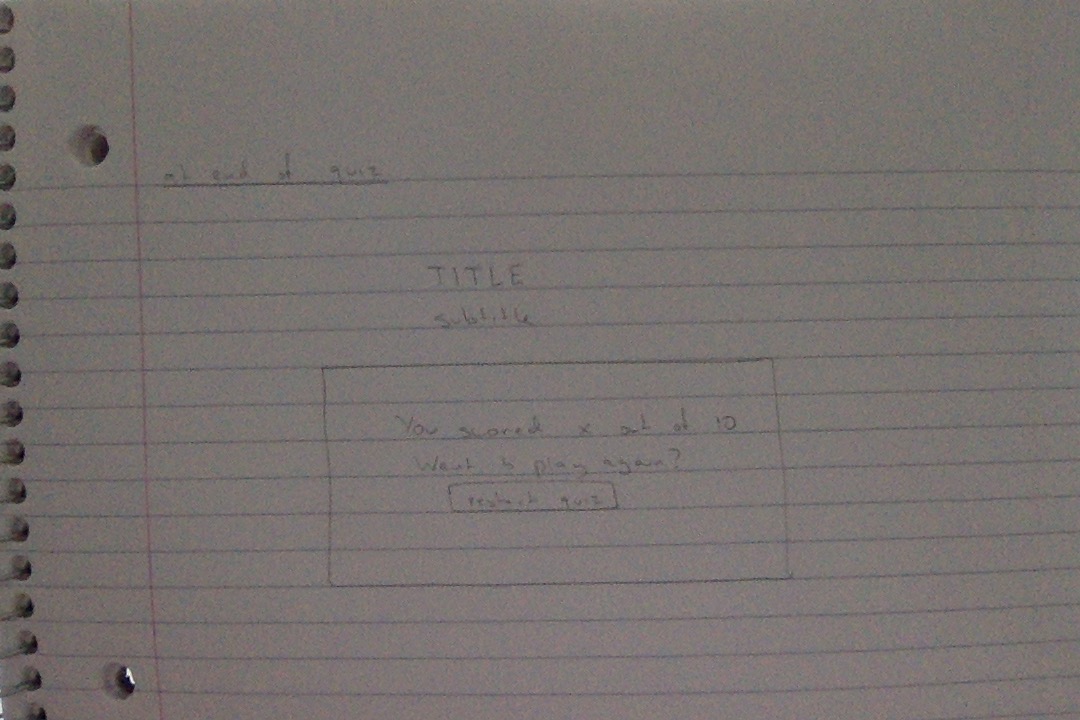 at end of quiz
TITLE
subtitle
You scored x out of 10
Want to play again?
restart quiz